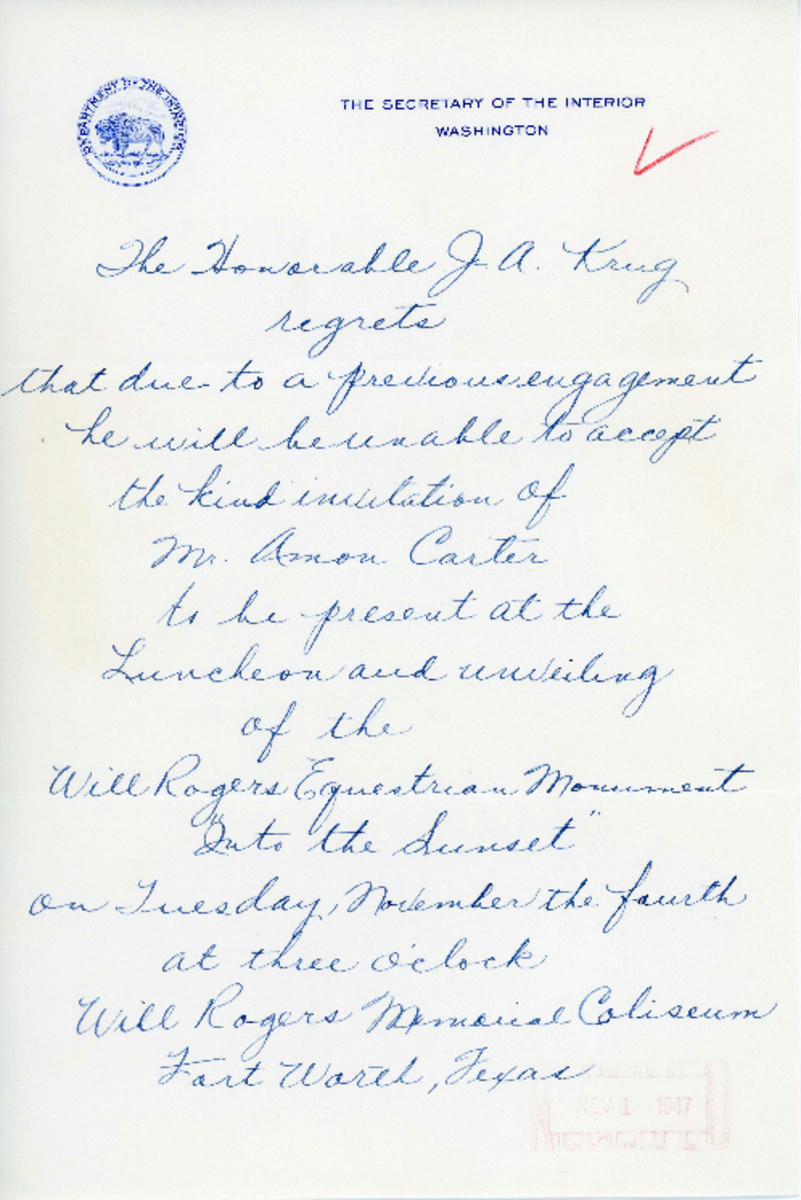 DEPARTMENT OF THE INTERIOR
THE SECRETARY OF THE INTERIOR
WASHINGTON
The Honorable J. A. Krug
regrets
that due to a previous engagement
he will be unable to accept
the kind invitation of
Mr. Amon Carter
to be present at the
Luncheon and unveiling
of the
Will Rogers Equestrian Monument
"Into the Sunset"
on Tuesday, November the fourth
at three o'clock
Will Rogers Memorial Coliseum
Fort Worth, Texas
NOV 1 1947